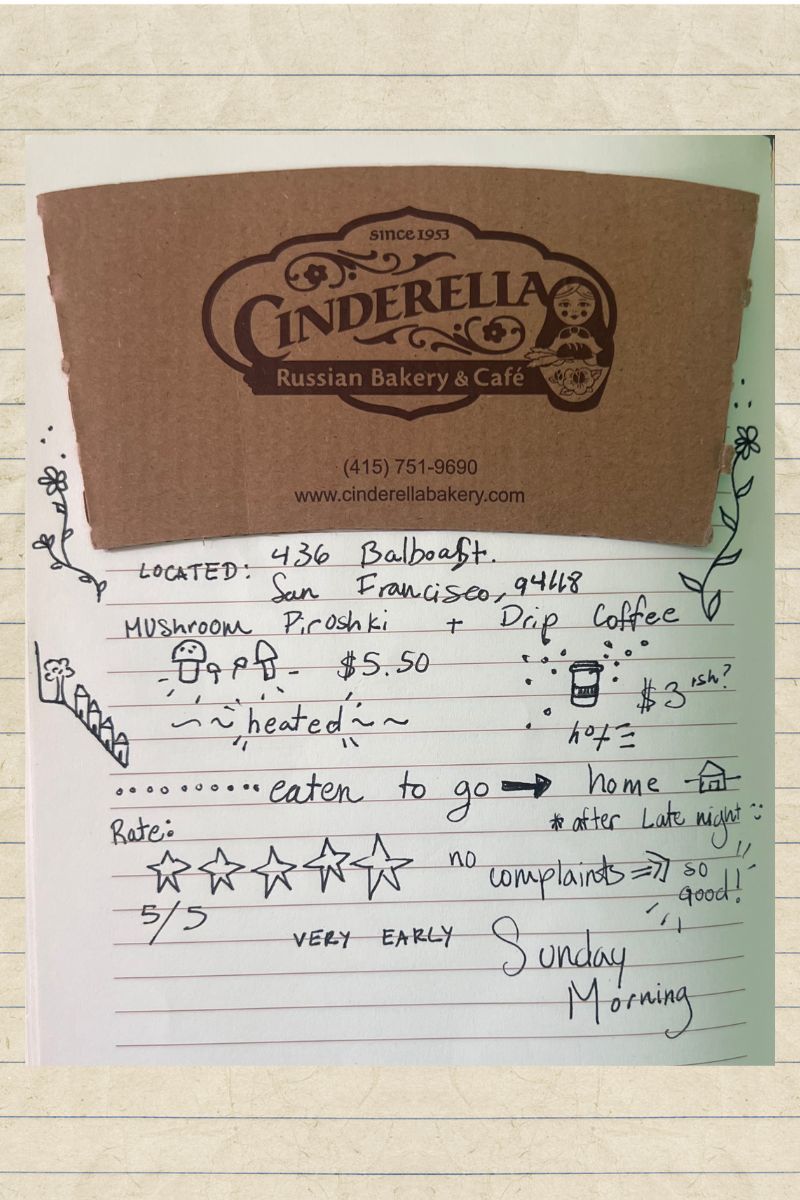 since 1953
CINDERELLA
Russian Bakery & Café
(415) 751-9690
www.cinderellabakery.com
LOCATED: 436 Balboa St.
San Francisco, 94118
MUShroom Piroshki + Drip Coffee
$5.50
$3 ish?
~ ~ heated ~ ~
hot
eaten to go → home
* after Late night :)
Rate:
no complaints ⇒ so good!
5/5
VERY EARLY Sunday
Morning